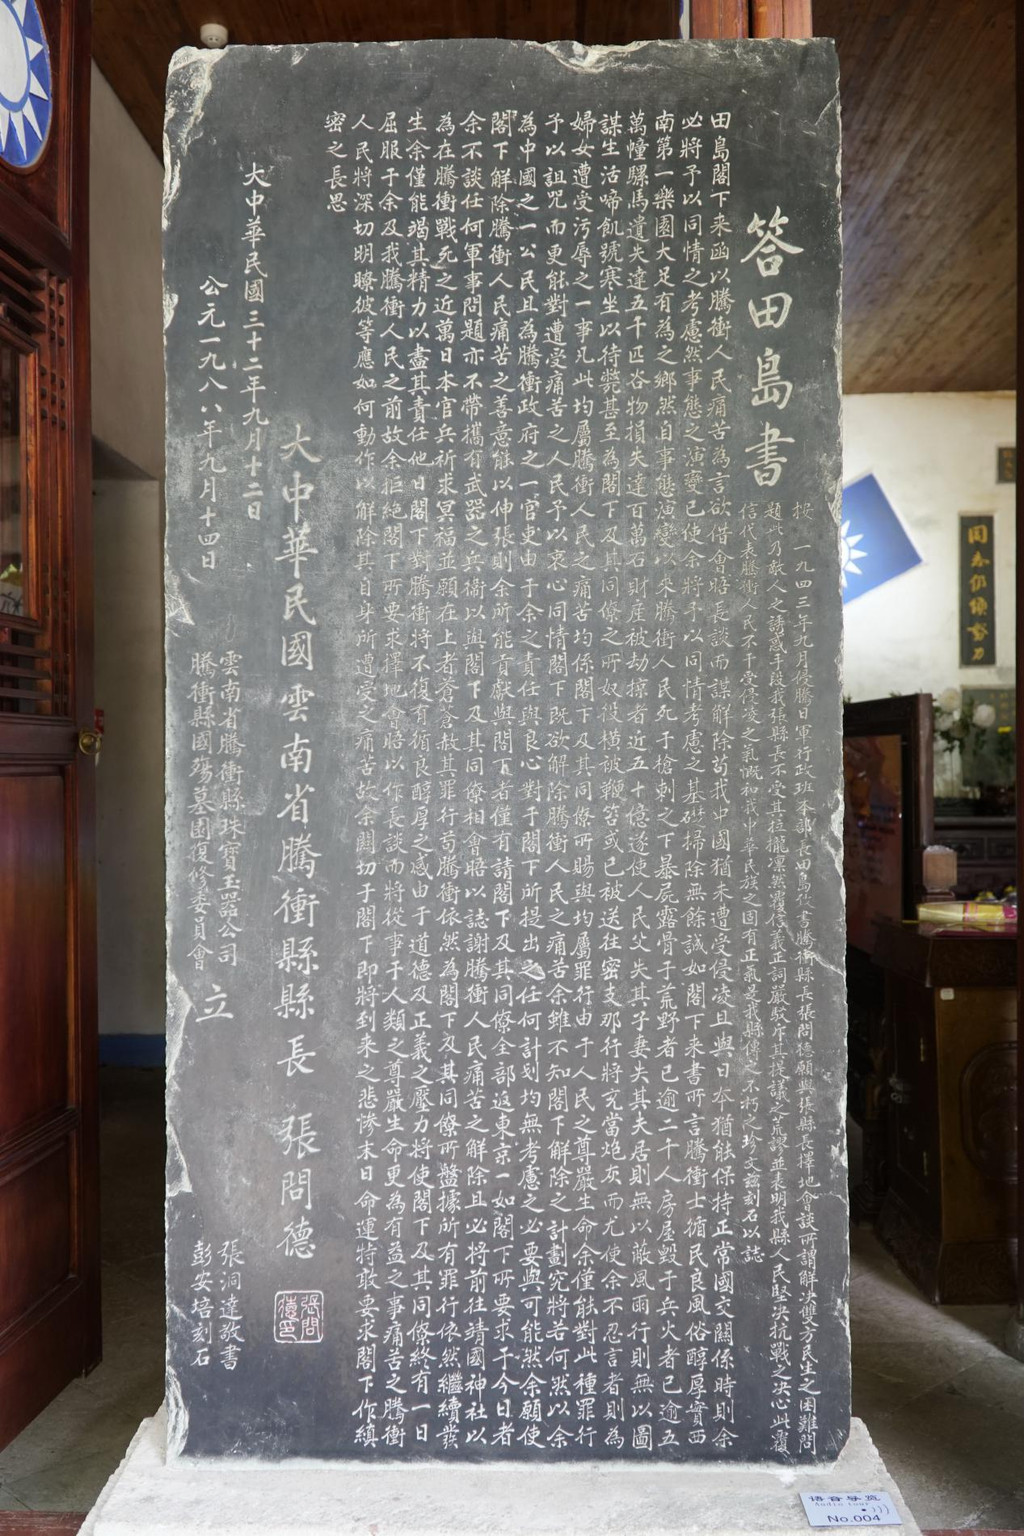 答田島書
按 一九四三年九月侵騰日軍行政班本部長田島致書騰衝縣長張問德願與張縣長擇地會談所謂解決雙方民生之困難問
題此乃敵人之誘惑手段我張縣長不受其拉攏凜然覆信義正詞嚴駁斥其提議之荒謬並表明我縣人民堅決抗戰之決心此覆
信代表騰衝人民不干受侵凌之氣慨和我中華民族之固有正氣是我縣傳之不朽之珍文茲刻石以誌
田島閣下来函以騰衝人民痛苦為言欲借會晤長談而謀解除苟我中國猶未遭受侵凌且與日本猶能保持正常國交關係時則余
必將予以同情之考慮然事態之演變已使余將予以同情考慮之基礎掃除無餘誠如閣下来書所言騰衝士循民良風俗醇厚實西
南第一樂園大足有為之鄉然自事態演變以来騰衝人民死于槍刺之下暴屍露骨于荒野者已逾二千人房屋毀于兵火者已逾五
萬幢騾馬遺失達五千匹谷物損失達百萬石財産被劫掠者近五十億遂使人民父失其子妻失其夫居則無以蔽風雨行則無以圖
謀生活啼飢號寒坐以待斃甚至為閣下及其同僚之所奴役橫被鞭笞或已被送往密支那行將充當炮灰而尤使余不忍言者則為
婦女遭受污辱之一事凡此均屬騰衝人民之痛苦均係閣下及其同僚所賜與均屬罪行由于人民之尊嚴生命余僅能對此種罪行
予以詛咒而更能對遭受痛苦之人民予以衷心同情閣下既欲解除騰衝人民之痛苦余雖不知閣下解除之計劃究將若何然以余
為中國之一公民且為騰衝政府之一官吏由于余之責任與良心對于閣下所提出之任何計划均無考慮之必要與可能然余願使
閣下解除騰衝人民痛苦之善意能以伸張則余所能貢獻與閣下者僅有請閣下及其同僚全部返東京一如閣下所要求于今日者
余不談任何軍事問題亦不帶攜有武器之兵衞以與閣下及其同僚相會晤以誌謝騰衝人民痛苦之解除且必將前往靖國神社以
為在騰衝戰死之近萬日本官兵祈求冥福並願在上者蒼蒼赦其罪行苟騰衝依然為閣下及其同僚所盤據所有罪行依然繼續發
生余僅能竭其精力以盡其責任他日閣下對騰衝將不復有循良醇厚之感由于道德及正義之壓力將使閣下及其同僚終有一日
屈服于余及我騰衝人民之前故余拒絕閣下所要求擇地會晤以作長談而將從事于人類之尊嚴生命更為有益之事痛苦之騰衝
人民將深切明瞭彼等應如何動作以解除其自身所遭受之痛苦故余關切于閣下即將到来之悲慘末日命運特敢要求閣下作縝
密之長思
大中華民國雲南省騰衝縣縣長 張問德
張問德印
大中華民國三十二年九月十二日
公元一九八八年九月十四日
雲南省騰衝縣珠寶玉器公司
騰衝縣國殤墓園復修委員會 立
張洞達敬書
彭安培刻石
语音导览
Audio tour
No.004